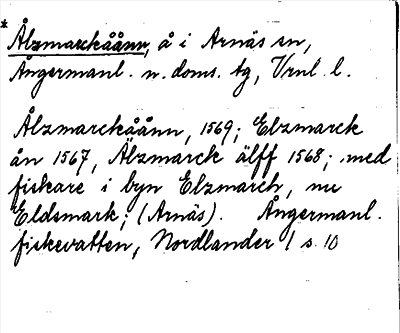 * Ålzmarckåånn, å i Arnäs sn,
Ångermanl. n. doms. tg, Vrnl. l.
Ålzmarckåånn, 1569; Elzmarck
ån 1567, Älzmarck älff 1568; med
fiskare i byn Elzmarch, nu
Eldsmark; (Arnäs). Ångermanl.
fiskevatten, Nordlander 1 s. 10